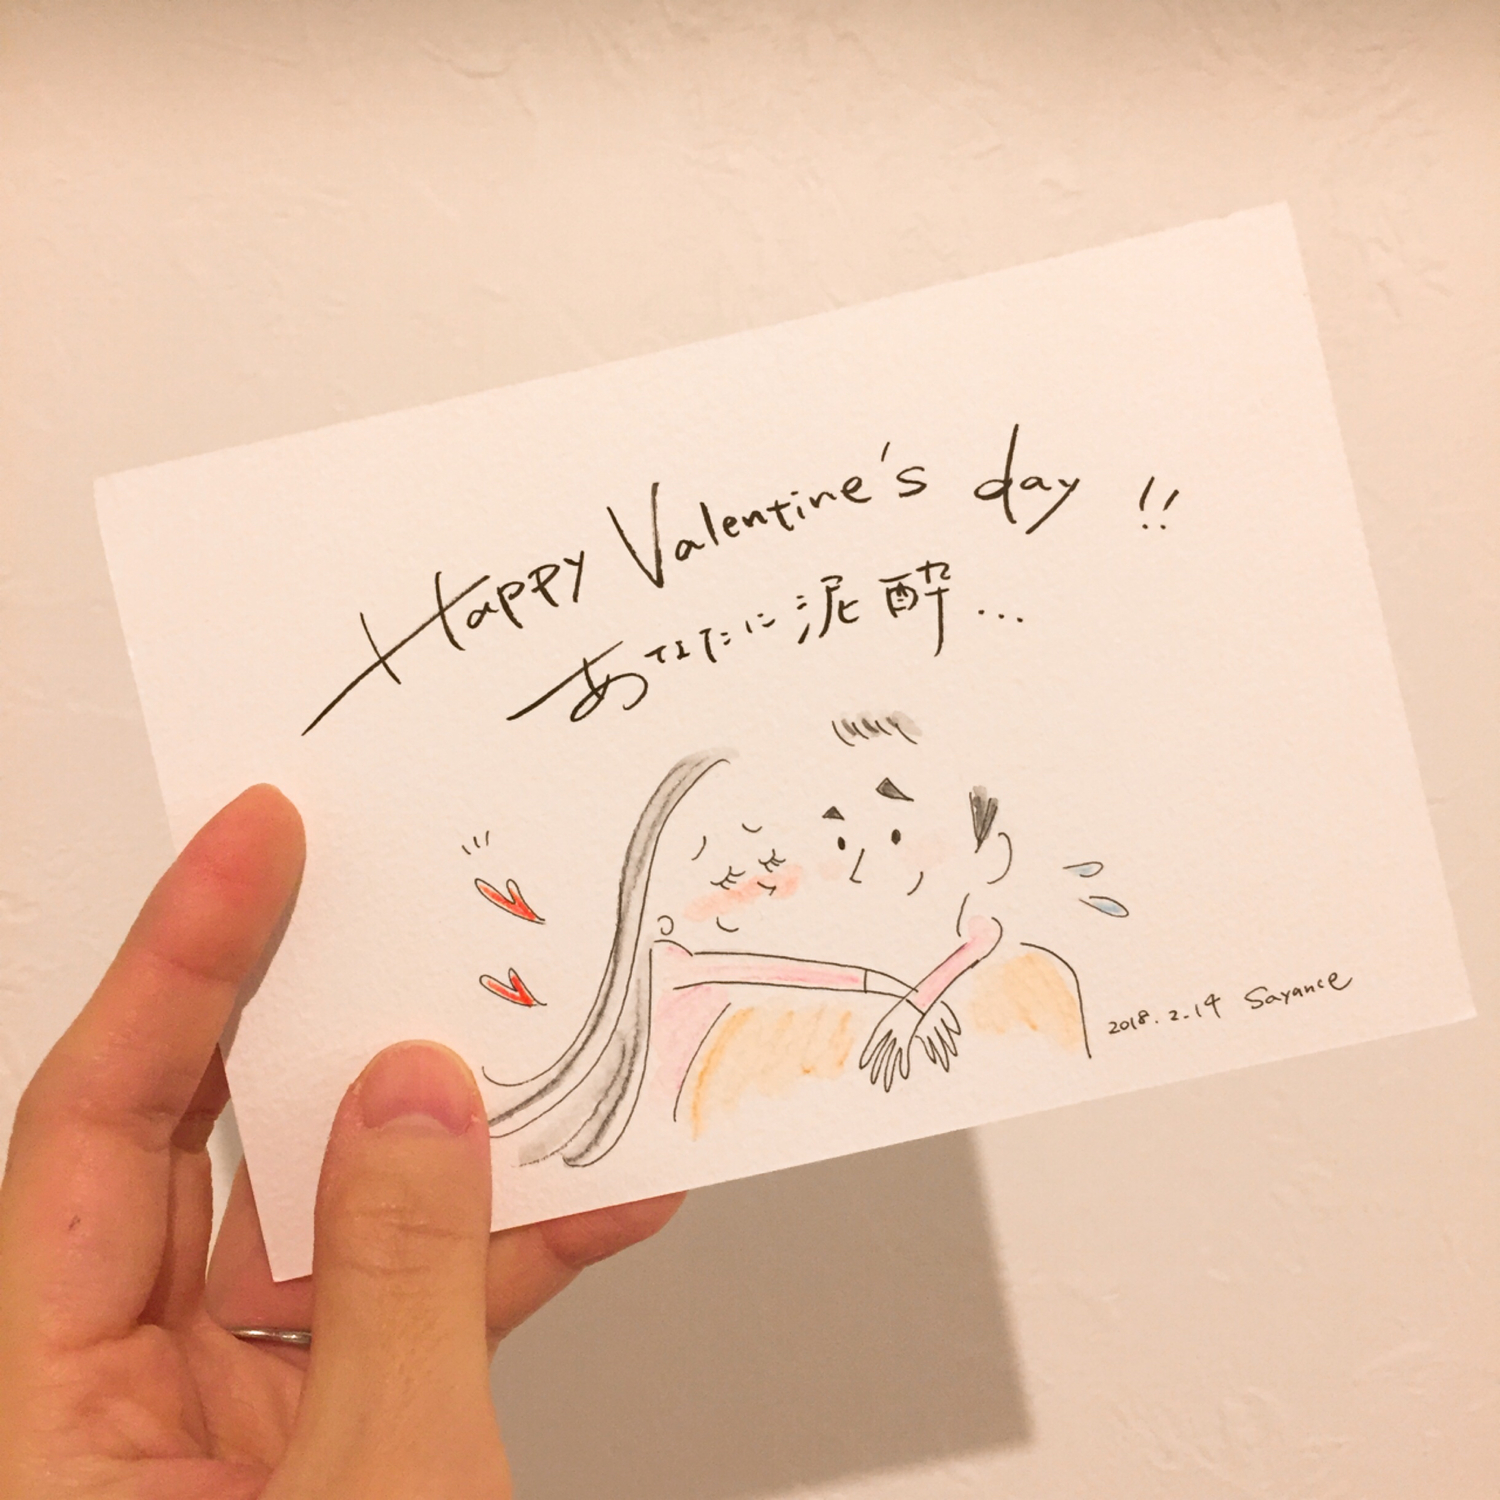 Happy Valentine's day !!
あなたに泥酔...
2018.2.14 Sayance